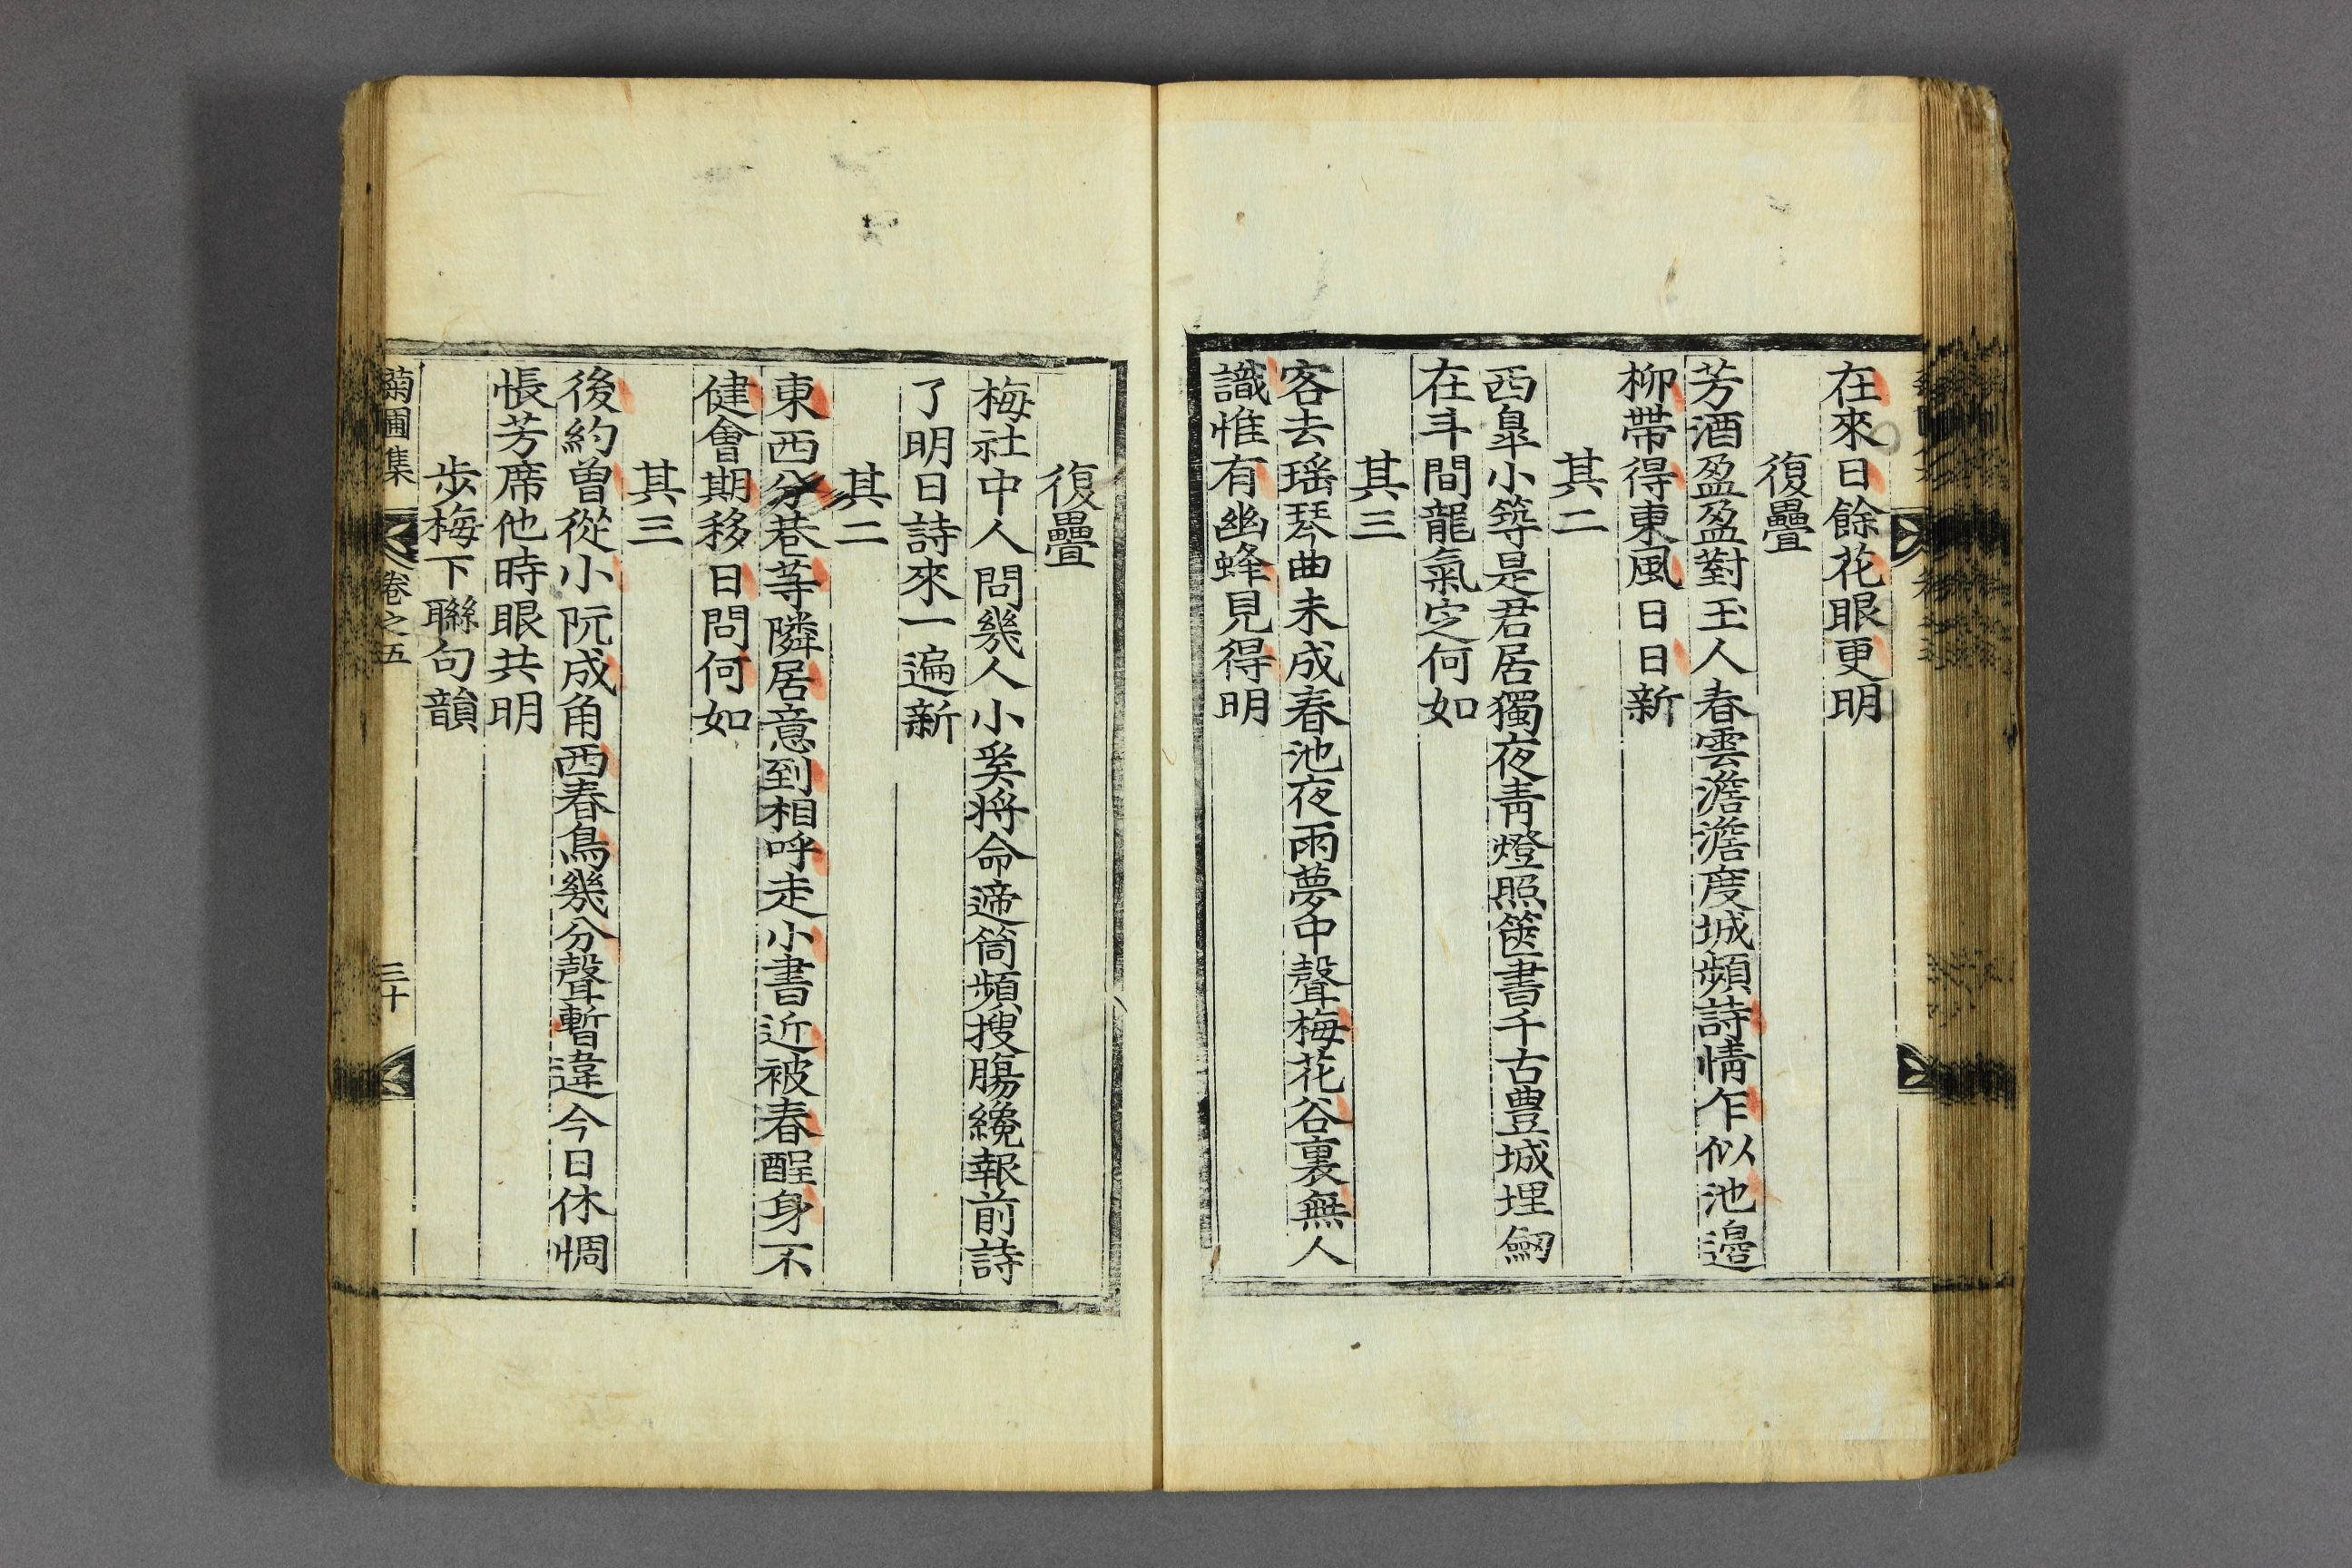 在來日餘花眼更明
復疊
芳酒盈盈對玉人春雲澹澹度城頻詩情乍似池邊
柳帶得東風日日新
其二
西皐小築是君居獨夜靑燈照篋書千古豊城埋劒
在斗間龍氣定何如
其三
客去瑶琴曲未成春池夜雨夢中聲梅花谷裏無人
識惟有幽蜂見得明
復疊
梅社中人問幾人小奚將命遞筒頻搜膓纔報前詩
了明日詩來一遍新
其二
東西分巷荨隣居意到相呼走小書近被春酲身不
健會期移日問何如
其三
後約曾從小阮成角西春鳥幾分聲暫違今日休惆
悵芳席他時眼共明
步梅下聯句韻
菊圃集 卷之五 三十